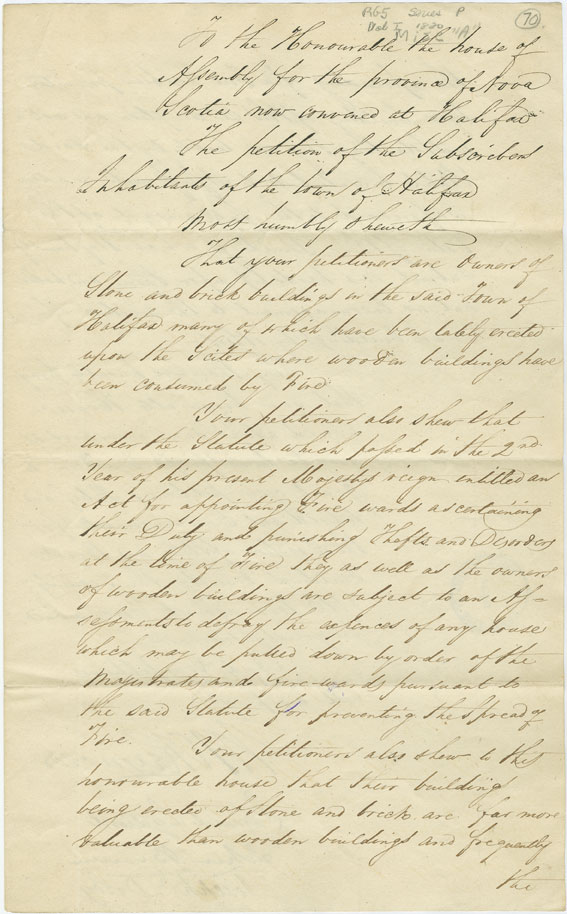 RG5 Series P
Vol I 1820
Misc "A"
70
To the Honourable the house of
Assembly for the province of Nova
Scotia now convened at Halifax
The petition of the Subscribers
Inhabitants of the town of Halifax
Most humbly Sheweth
That your petitioners are Owners of
Stone and brick buildings in the said Town of
Halifax many of which have been lately erected
upon the Scites where wooden buildings have
been consumed by Fire
Your petitioners also shew that
under the Statute which passed in the 2nd
Year of his present Majestys reign entitled an
Act for appointing Fire wards ascertaining
their Duty and punishing Thefts and Disorders
at the time of Fire they as well as the owners
of wooden buildings are subject to an As=
sessments to defray the expences of any house
which may be pulled down by order of the
Majistrates and fire-wards pursuant to
the said Statute for preventing the Spread of
Fire.
Your petitioners also shew to this
honourable house that their building
being erected of Stone and brick are far more
valuable than wooden buildings and frequently
the